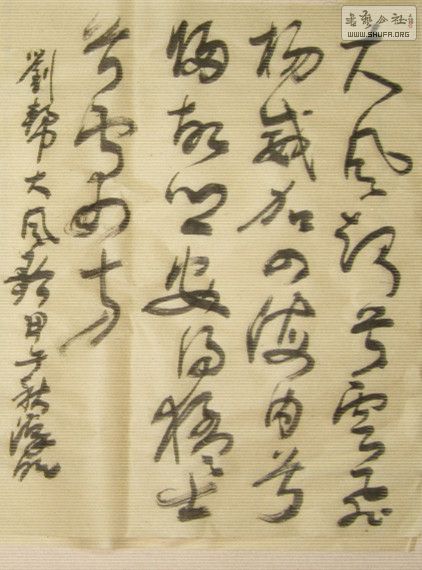 大風起兮雲飛
揚威加四海內兮
歸故鄉安得猛士
兮守四方
劉幫大風歌甲午秋
書藝公社
WWW.SHUFA.ORG